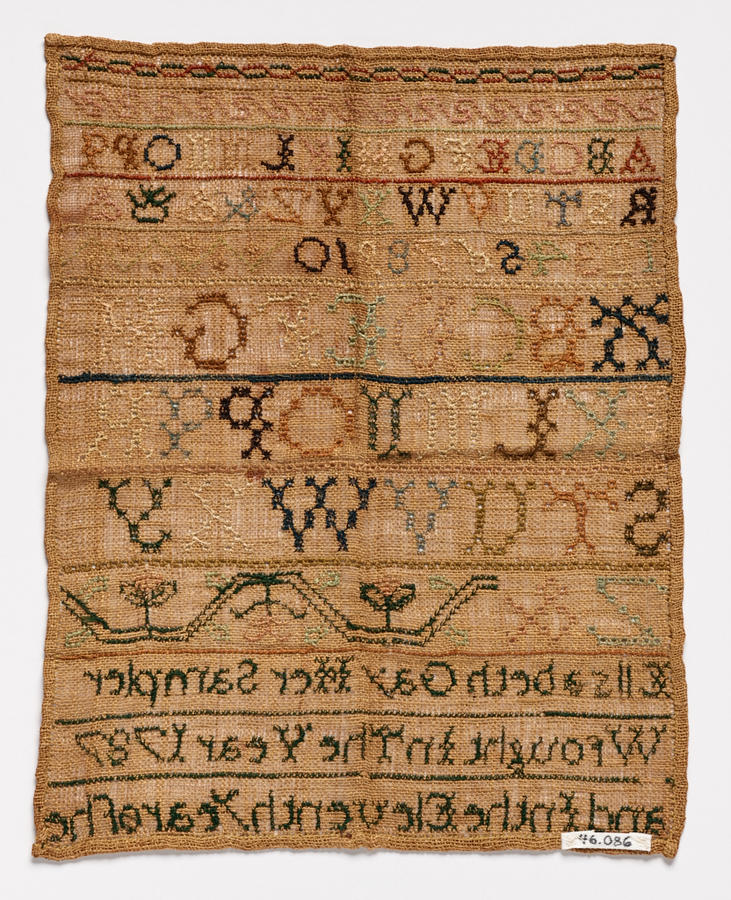 A B C D E F G H I K L M N O P Q
R S T U V W X Y Z &
1 2 3 4 5 6 7 8 9 10
A B C D E F G H
I K L M N O P Q R
S T U V W X Y
Z &
Elisabeth Gay Her Sampler
Wrought In The Year 1787
and In the Eleventh Year of he
46.086